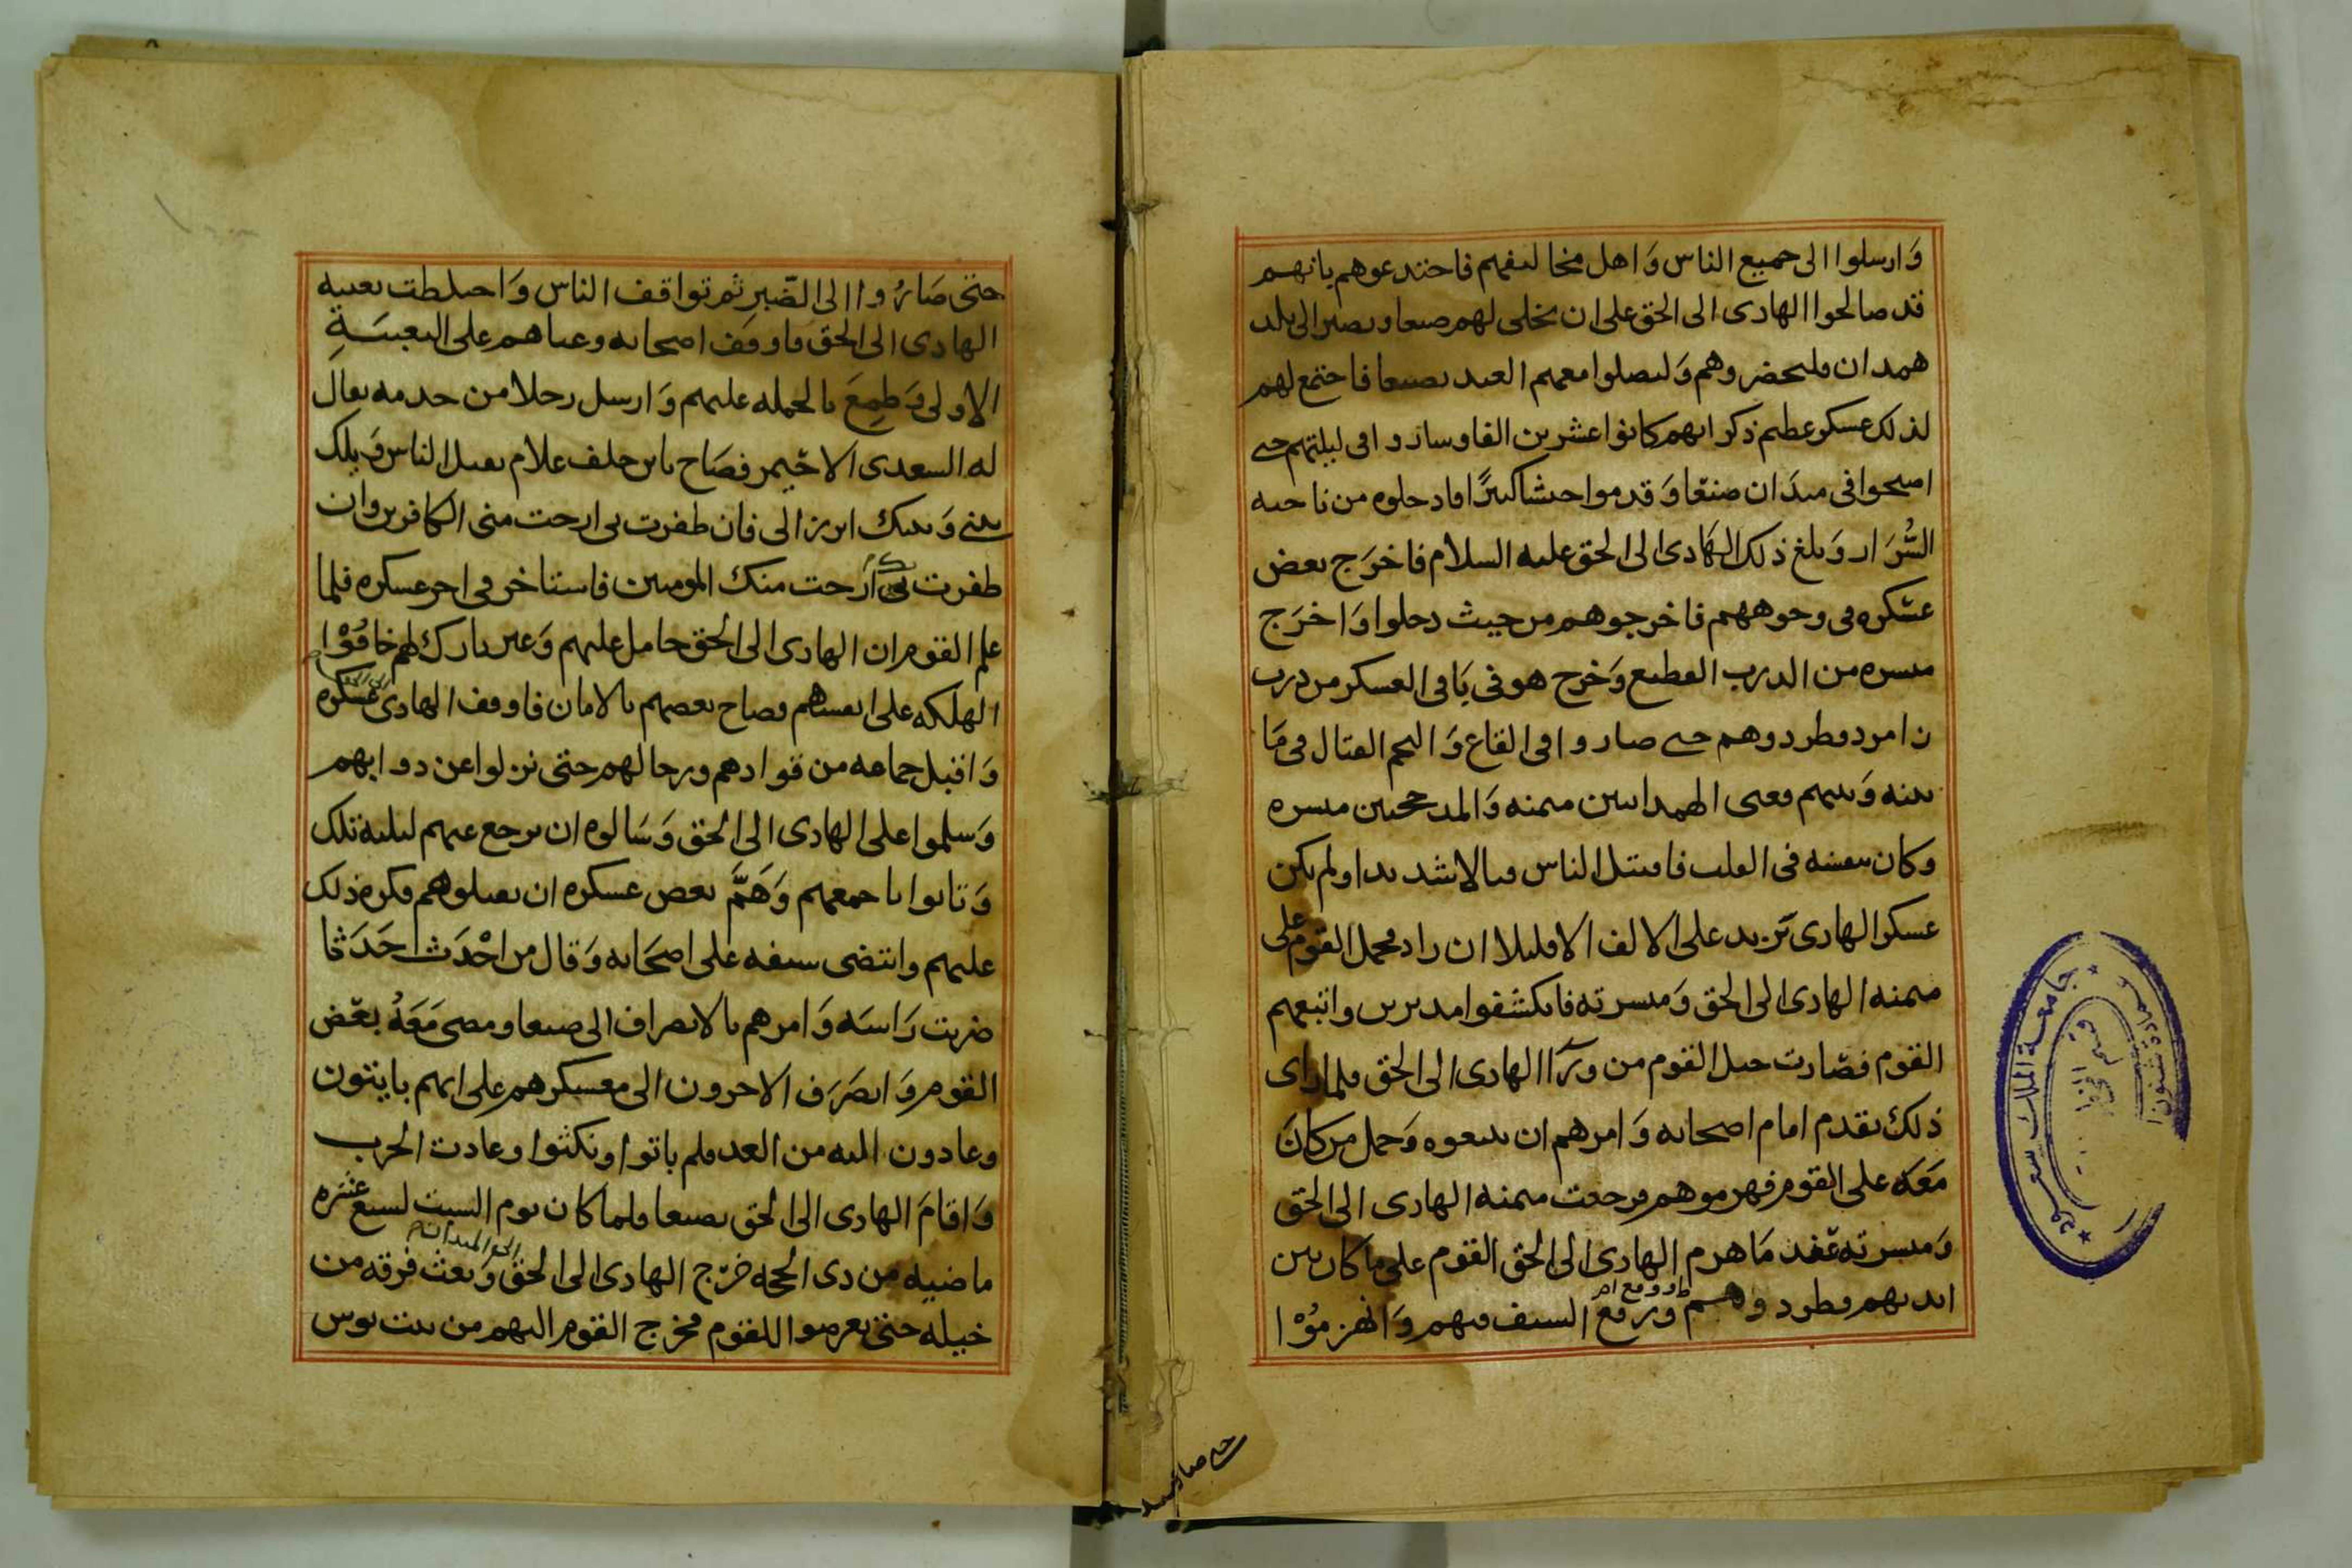 وَارسلوا الى جميع الناس وَاهل مخالفيهم فاختدعوهم بانهم
قد صالحوا الهادى الى الحق على ان يخلى لهم صنعا ويصير الى بلد
همدان فليحضروهم وَليصلوا معهم العيد بصنعا فاجتمع لهم
لذلك عسكر عظيم ذكر انهم كانوا عشرين الفا وساروا فى ليلتهم حتى
اصبحوا فى ميدَان صنعَا وَقدموا جيشا كبيرًا فادخلوه من ناحيه
السِّرَار وَبلغ ذلك الهَادى الى الحق عليه السلام فاخرَج بعض
عسكره فى وجوههم فاخرجوهم من حيث دخلوا وَاخرَج
ميسره من الدرب القطيع وَخرج هو فى بَاقى العسكر من درب
دامرد فطردوهم حتى صاروا فى القاع وَالتحم القتال فى مَا
بينه وَبينهم فعبى الهمدانيين ميمنه وَالمذحجيين ميسره
وكان بنفسه فى القلب فاقتتل الناس قتالا شديدا ولم يكن
عسكر الهادى يَزيد على الالف الا قليلا ان زاد فحمل القوم على
ميمنه الهادى الى الحق وَميسرته فانكشفوا مدبرين واتبعهم
القوم فصَارت خيل القوم من ورَآ الهادى الى الحق فلما رَاى
ذلك تقدم امام اصحابه وَامرهم ان يتبعوه وَحمل من كانَ
مَعَه على القوم فهزموهم فرجعت ميمنه الهادى الى الحق
وَميسرته عند مَا هزم الهادى الى الحق القوم على ما كان من
ايديهم فطرد وهم ورفع السيف فيهم وَانهزمُوْا
حتى صاروا
حتى صَارُوا الى الصَّبر ثم تواقف الناس وَاختلطت تعبيه
الهادى الى الحق فاوقف اصحابه وعباهم على التعبيَةِ
الاولى وَطمِعَ بالحمله عليهم وَارسل رجلا من خدمه يقال
له السعدى الاحَيمر فصَاح يابن خلف علام يقتل الناس وَيلك
بينى وَبينك ابرز الى فان ظفرت بى ارحت منى الكافرين وان
ظفرت بك اَرحت منك المومنين فاستاخر فى اخر عسكره فلما
علم القوم ان الهادى الى الحق حامل عليهم وَغير تارك لهم خافُوْا
الهلكه على انفسهم فصاح بعضهم بالامان فاوقف الهادى الى الحق عسكره
وَاقبل جماعه من قوادهم ورجالهم حتى نزلوا عن دوابهم
وَسلموا على الهادى الى الحق وَسَالوه ان يرجع عنهم ليلته تلك
وَتابوا باجمعهم وَهَمَّ بعض عسكره ان يقتلوهم فكره ذلك
عليهم وانتضى سيفه على اصحَابه وَقال من احْدَث حَدَثا
ضربت رَاسَه وَامرهم بالانصراف الى صنعا ومضى مَعَهُ بعَض
القوم وَانصَرَف الاخرون الى معسكرهم على انهم ياتون
وعادون اليه من الغد فلم ياتوا ونكثوا وعادت الحرب
وَاقامَ الهادى الى الحق بصنعا ولما كان يوم السبت لسبع عشره
ماضيه من ذى الحجه خرَج الهادى الى الحق الى الميدان وَبعث فرقه من
خيله حتى تعرضوا للقوم فخرج القوم اليهم من بيت بوس
جامعة الملك سعود
عمادة شئون
قسم